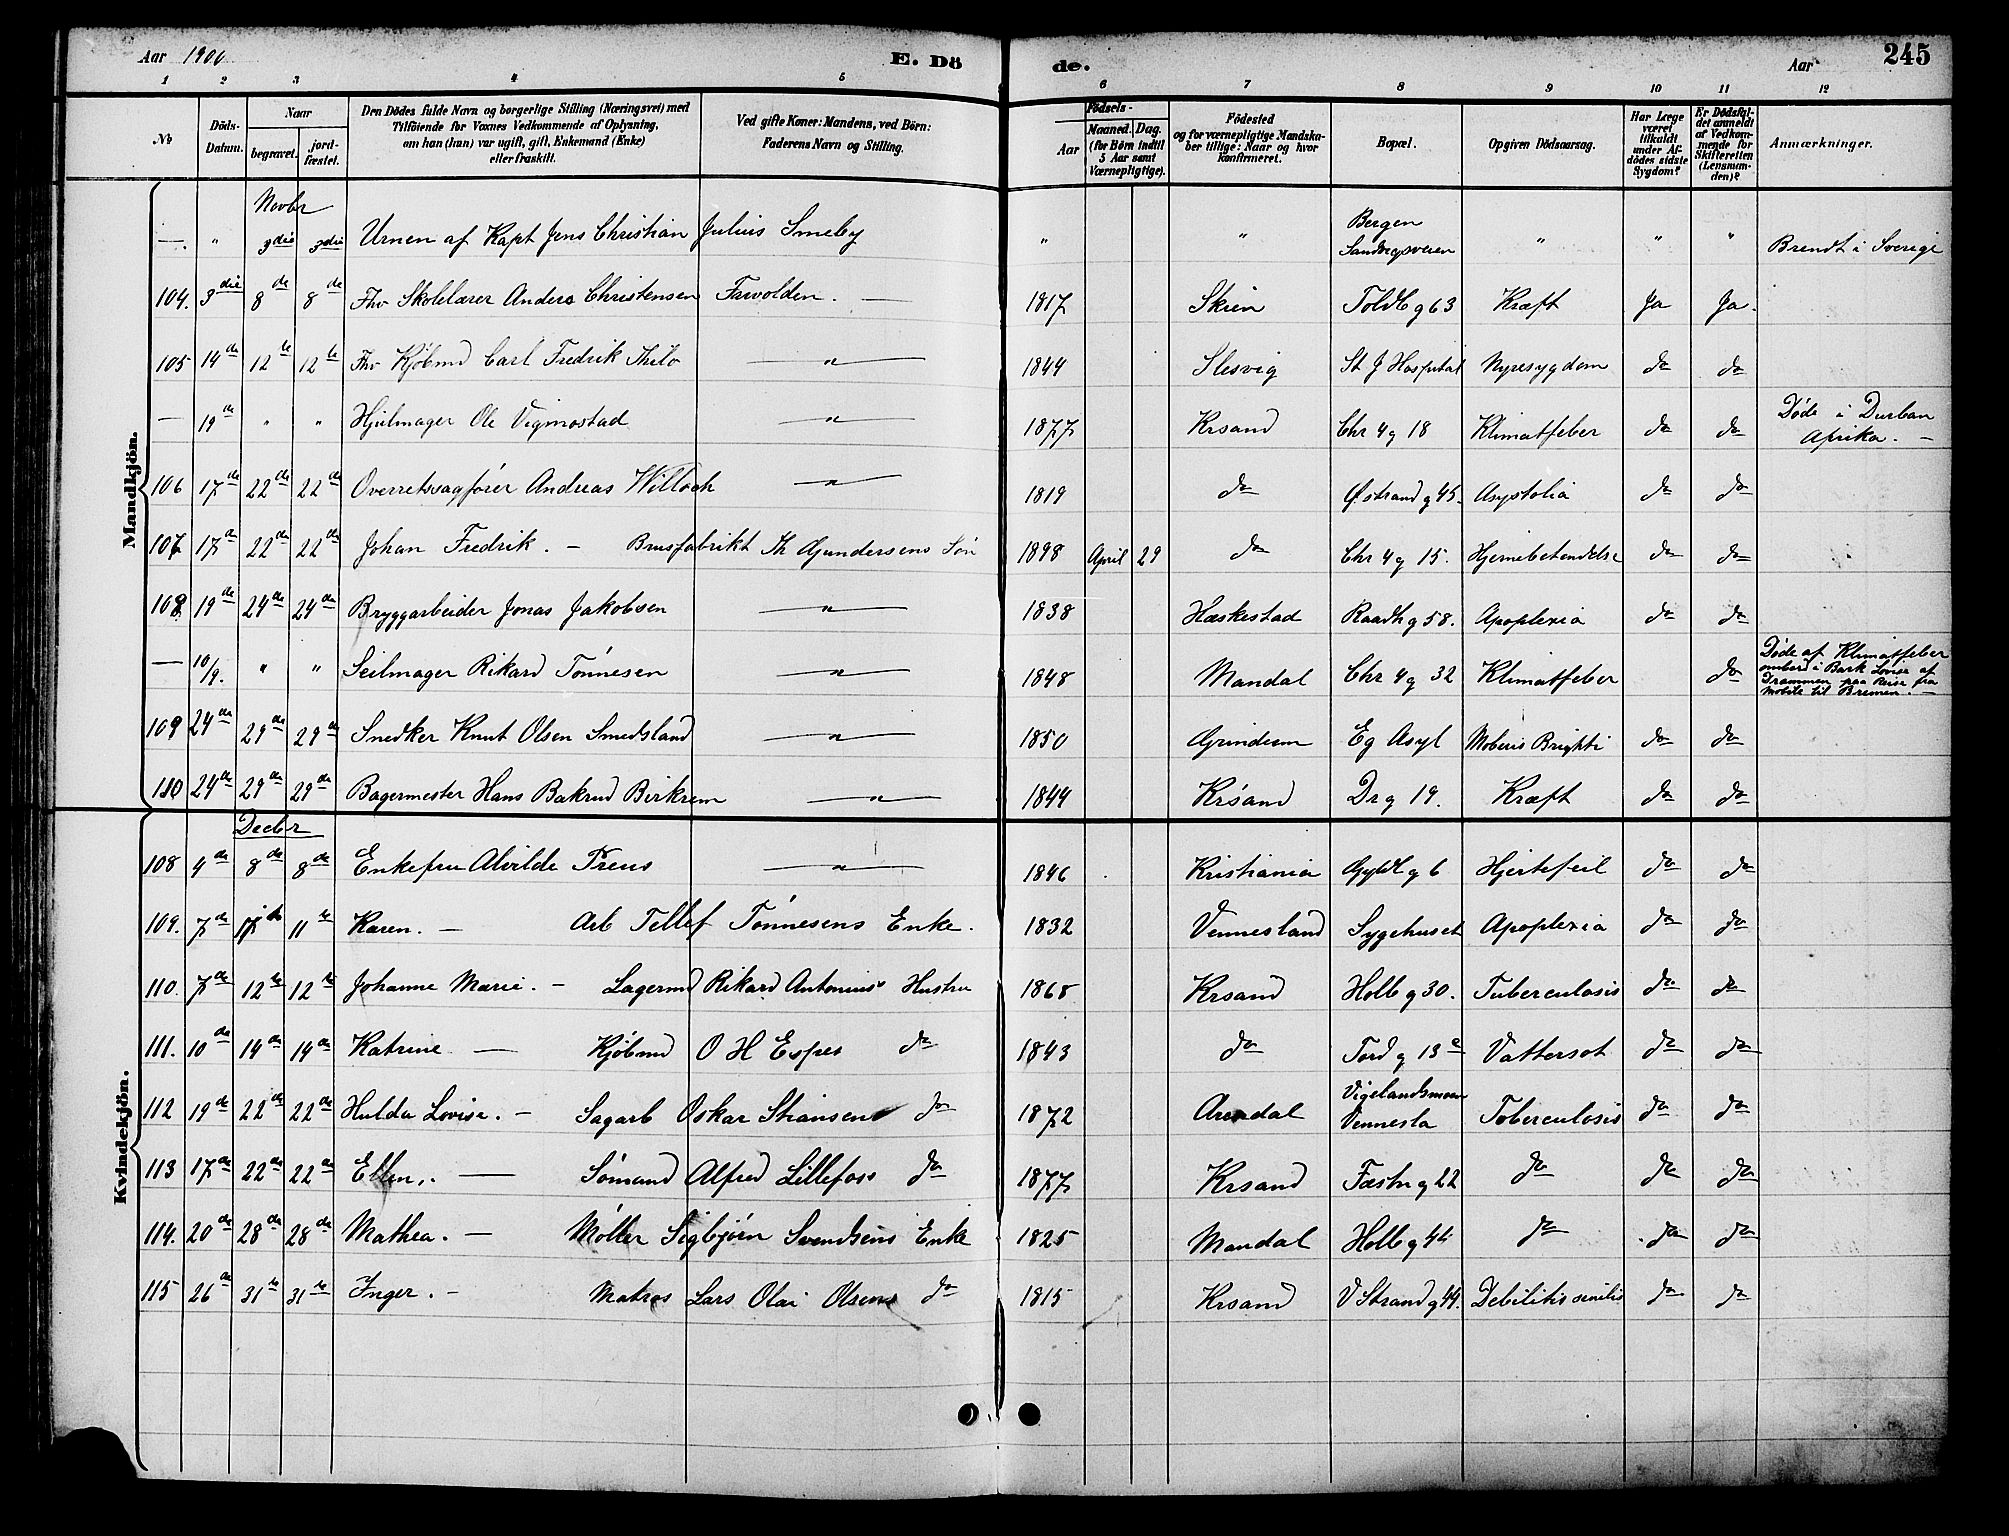 Aar 1900 E. Dö de. Aar 245
1 2 3 4 5 6 7 8 9 10 11 12
№ Döds-Datum. Naar begravet. jordfæstet. Den Dödes fulde Navn og borgerlige Stilling (Næringsvei) med Tilföiende for Voxnes Vedkommende af Oplysning, om han (hun) var ugift, gift, Enkemand (Enke) eller fraskilt. Ved gifte Koner: Mandens, ved Börn: Faderens Navn og Stilling. Födsels- Aar Maaned. Dag. (for Börn indtil 5 Aar samt Værnepligtige). Födested og for værnepligtige Mandskaber tillige: Naar og hvor konfirmeret. Bopæl. Opgiven Dödsaarsag. Har Læge været tilkaldt under Afdödes sidste Sygdom? Er Dödsfaldet anmeldt af Vedkommende for Skifteretten (Lensmanden)? Anmærkninger.
Mandkjön.
Novbr
— " 3die 3die Urnen af Kapt Jens Christian Julius Smeby " " Bergen Sandvigsveien " " " Brendt i Sverige
104. 3die 8de 8de Fhv Skolelærer Anders Christensen Farvolden. — 1817 Skien Toldb g 63 Kræft Ja Ja.
105 14de 12te 12te Fhv Kjøbmd Carl Fredrik Thilo — " — 1844 Slesvig St J Hospital Nyresygdom do do
— 19de " " Hjulmager Ole Vigmostad — " — 1877 Krsand Chr 4 g 18 Klimatfeber do do Døde i Durban Afrika. —
106 17de 22de 22de Overretssagfører Andreas Willoch — " — 1819 do Østrand g 45. Asystolia do do
107 17de 22de 22de Johan Fredrik. — Brusfabrikt Th Gundersens Søn 1898 April 29 do Chr 4 g 15. Hjernebetendelse do do
108. 19de 24de 24de Bryggarbeider Jonas Jakobsen — " — 1838 Hæskestad Raadh g 58. Apoplexia do do
— 10/9. " " Seilmager Rikard Tønnesen — " — 1848 Mandal Chr 4 g 32 Klimatfeber do Døde af Klimatfeber ombord i Bark af Drammen paa Reise fra Mobile til Bremen. —
109 24de 29de 29de Snedker Knut Olsen Smedsland — " — 1850 Grindum Eg Asyl Moberis Brighti do do
110 24de 29de 29de Bagermester Hans Bakrud Birkrem — " — 1844 Krsand Dr g 19. Kræft do do
Kvindekjön.
Decbr
108 4de 8de 8de Enkefru Alvilde Preus — " — 1846 Kristiania Gyldl g 6 Hjertefeil do do
109. 7de 11te 11te Karen. — Arb Tellef Tønnesens Enke. 1832 Vennesland Sygehuset Apoplexia do do
110. 7de 12te 12te Johanne Marie. — Lagermd Rikard Antonius' Hustru 1868 Krsand Holb g 30. Tuberculosis do do
111. 10de 14de 14de Katrine — Kjøbmd O H Espes do 1843 do Tord g 13a Vattersot do do
112 19de 22de 22de Hulda Lovise. — Sagarb Oskar Stiansens do 1872 Arendal Vigelandsmoen Vennesla Toberculosis do do
113 17de 22de 22de Ellen.. — Sømand Alfred Lillefoss do 1877 Krsand Fæstn g 22 do do do
114. 20de 28de 28de Mathea. — Møller Sigbjørn Svendsens Enke 1825 Mandal Holb g 44 do do do
115 26de 31te 31te Inger. — Matros Lars Olai Olsens do 1815 Krsand V Strand g 49. Debilitis senilis do do